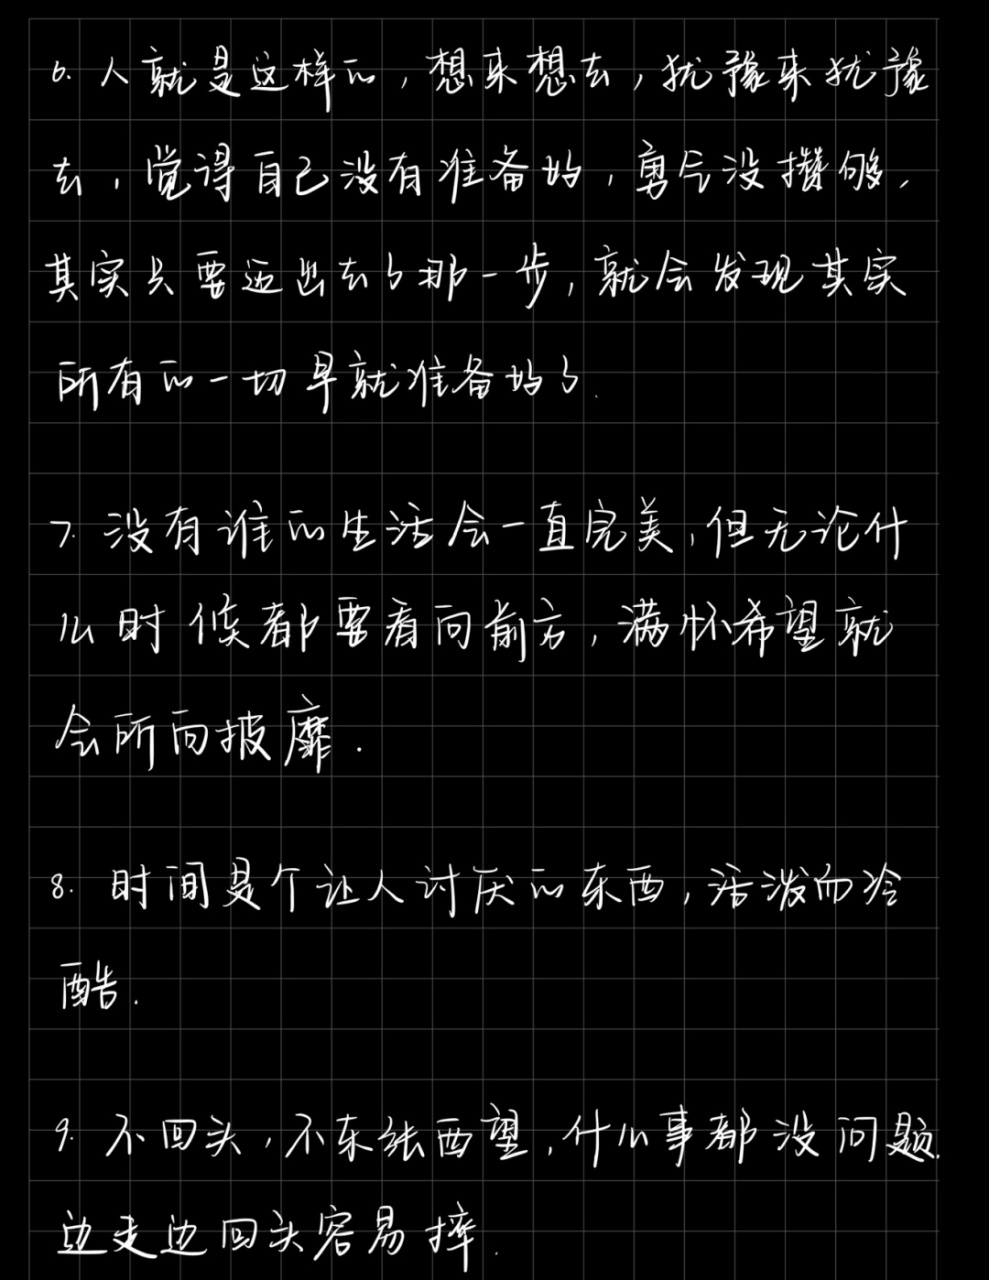 6. 人就是这样的，想来想去，犹豫来犹豫
去，觉得自己没有准备好，勇气没攒够，
其实只要迈出去了那一步，就会发现其实
所有的一切早就准备好了.
7. 没有谁的生活会一直完美，但无论什
么时候都要看向前方，满怀希望就
会所向披靡.
8. 时间是个让人讨厌的东西，活泼而冷
酷.
9. 不回头，不东张西望，什么事都没问题.
边走边回头容易摔.